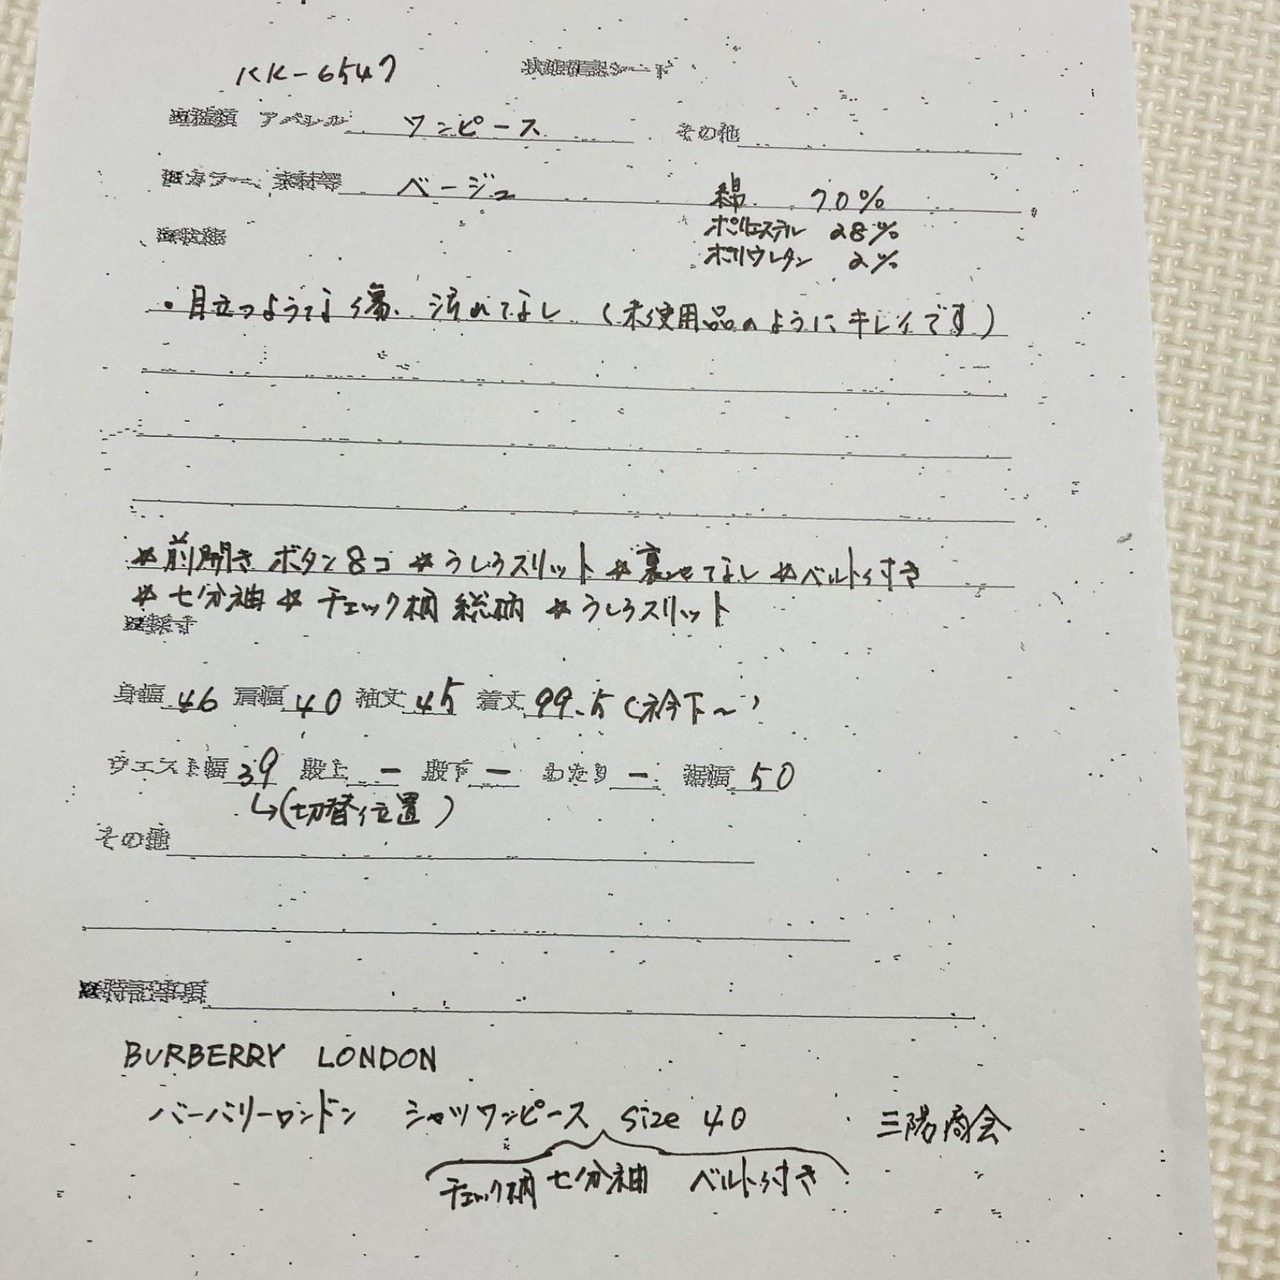 KK-6547 状態確認シート
種類 アパレル ワンピース その他
カラー、素材等 ベージュ 綿 70%
ポリエステル 28%
ポリウレタン 2%
状態
・目立つような傷、汚れなし (未使用品のようにキレイです)
*前開き ボタン8コ *うしろスリット *裏地なし *ベルト付き
*七分袖 *チェック柄 総柄 *うしろスリット
採寸
身幅 46 肩幅 40 袖丈 45 着丈 99.5 (衿下〜)
ウエスト幅 39 股上 ー 股下 ー わたり ー 裾幅 50
↳(切替位置)
その他
特記事項
BURBERRY LONDON
バーバリーロンドン シャツワンピース size 40 三陽商会
チェック柄 七分袖 ベルト付き